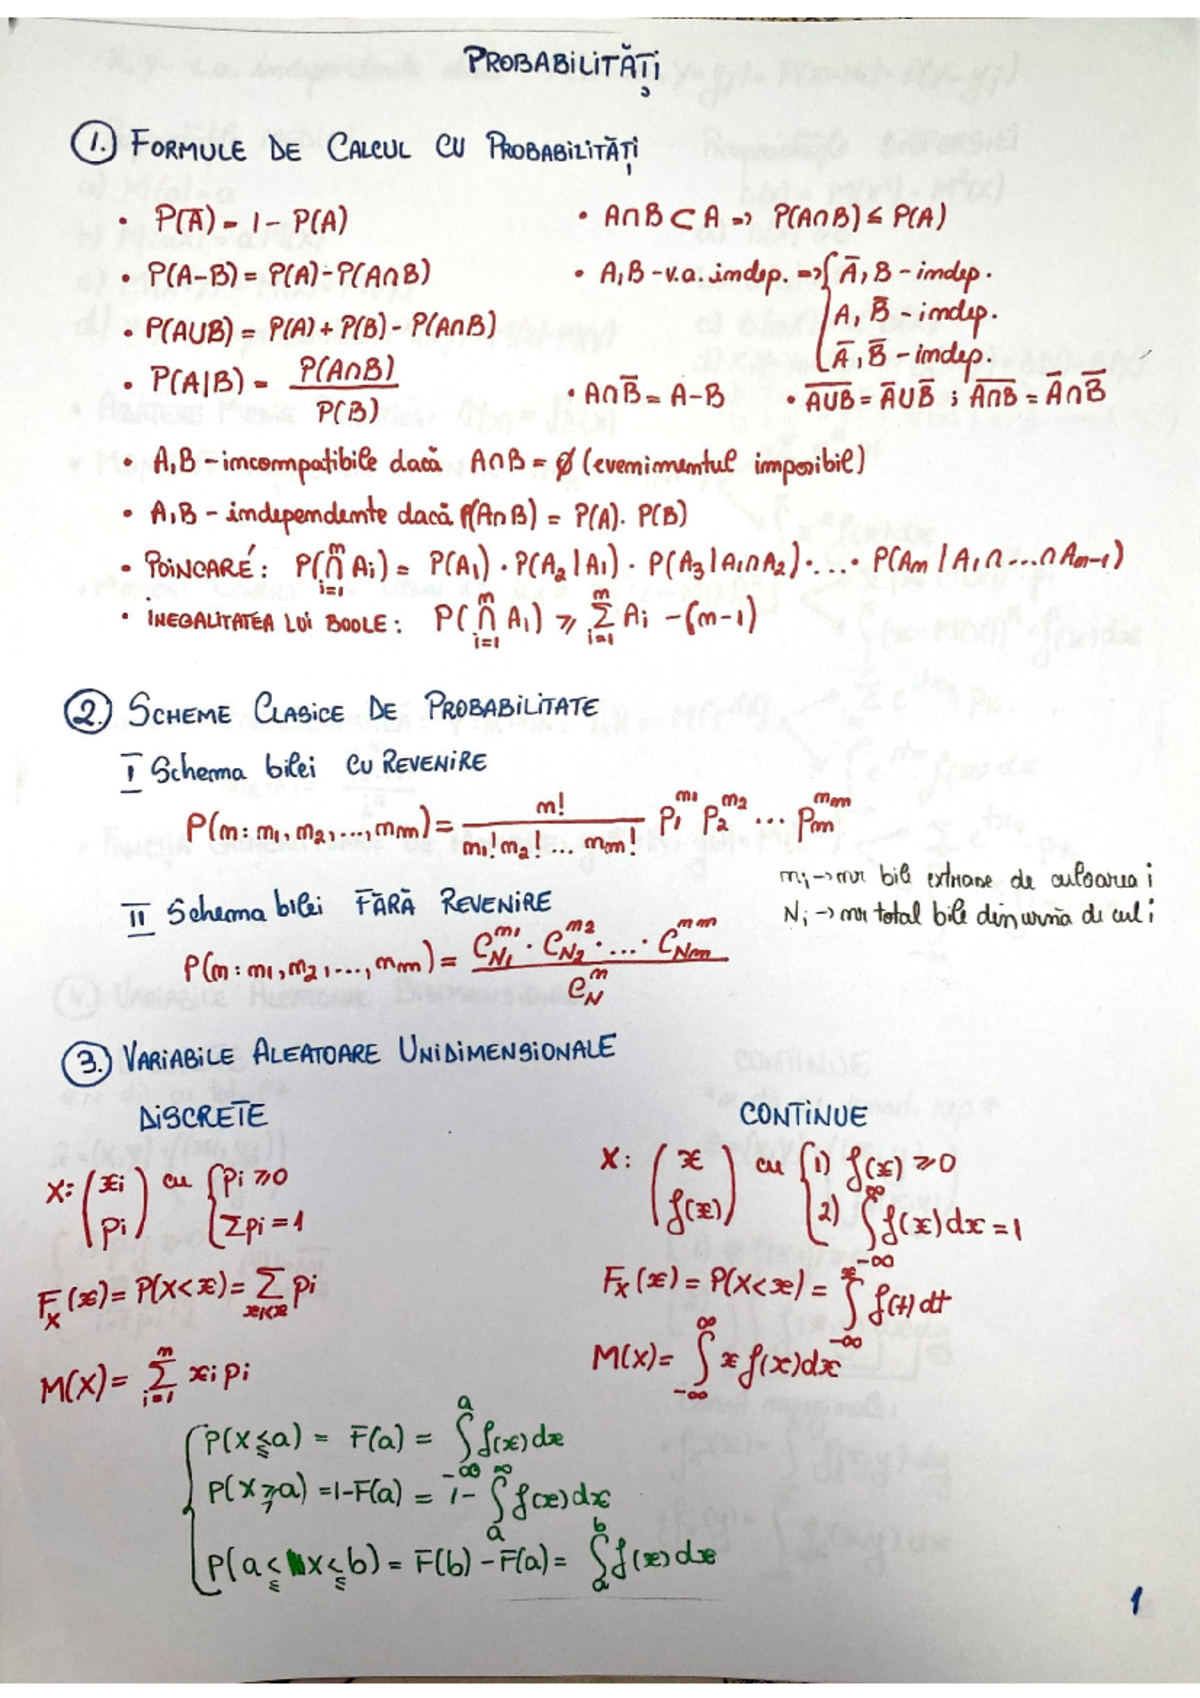 PROBABILITĂȚI
1. FORMULE DE CALCUL CU PROBABILITĂȚI
• P(Ā) = 1 - P(A)
• A∩B ⊂ A => P(A∩B) ≤ P(A)
• P(A-B) = P(A) - P(A∩B)
• A,B - v.a. indep. => { Ā, B - indep.
A, B̄ - indep.
Ā, B̄ - indep.
• P(A∪B) = P(A) + P(B) - P(A∩B)
• P(A|B) = P(A∩B) / P(B)
• A∩B̄ = A-B
• \overline{A∪B} = Ā∪B̄ ; \overline{A∩B} = Ā∩B̄
• A,B - incompatibile dacă A∩B = ∅ (evenimentul imposibil)
• A,B - independente dacă P(A∩B) = P(A). P(B)
• POINCARÉ: P(⋂_{i=1}^{n} Ai) = P(A1) · P(A2 | A1) · P(A3 | A1∩A2) · .... · P(An / A1∩ ... ∩ An-1)
• INEGALITATEA LUI BOOLE: P(⋂_{i=1}^{n} A1) ≥ Σ_{i=1}^{n} Ai - (n-1)
2. SCHEME CLASICE DE PROBABILITATE
I Schema bilei CU REVENIRE
P(n: n1, n2, ..., nm) = n! / (n1! n2! ... nm!) P1^{n1} P2^{n2} ... Pm^{nm}
ni -> nr bile extrase de culoarea i
Ni -> nr total bile din urnă de cul i
II Schema bilei FĂRĂ REVENIRE
P(n: n1, n2, ..., nm) = C_{N1}^{n1} · C_{N2}^{n2} · ... · C_{Nm}^{nm} / C_N^n
3. VARIABILE ALEATOARE UNIDIMENSIONALE
DISCRETE
X: (xi / pi) cu { pi ≥ 0
Σpi = 1
F_X(x) = P(X<x) = Σ_{xi<x} pi
M(X) = Σ_{i=1}^{n} xi pi
CONTINUE
X: (x / f(x)) cu { 1) f(x) ≥ 0
2) ∫_{-∞}^{∞} f(x)dx = 1
F_X(x) = P(X<x) = ∫_{-∞}^{x} f(t) dt
M(X) = ∫_{-∞}^{∞} x f(x)dx
{ P(X ≤ a) = F(a) = ∫_{-∞}^{a} f(x) dx
P(X ≥ a) = 1-F(a) = 1- ∫_{a}^{∞} f(x) dx
P(a ≤ X ≤ b) = F(b) - F(a) = ∫_{a}^{b} f(x) dx
1